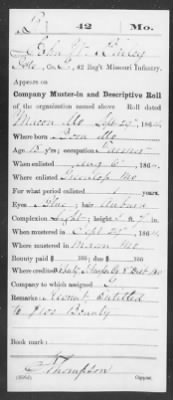 42 Mo.
John W.
Pvt., Co. G, 42 Reg't Missouri Infantry.
Appears on
Company Muster-in and Descriptive Roll
of the organization named above. Roll dated
Macon Mo Sept 29, 1864
Where born Boon Mo
Age 18 y'rs; occupation Farmer
When enlisted Aug 6, 1864
Where enlisted Mo
For what period enlisted 1 years.
Eyes Blue; hair Auburn
Complexion Light; height 5 ft. 7 in.
When mustered in Sept 29, 1864
Where mustered in Macon Mo
Bounty paid $ 100; due $ 100
Where credited
Company to which assigned G
Remarks: Recruit Entitled
to $100 Bounty
Book mark:
Thompson
Copyist.